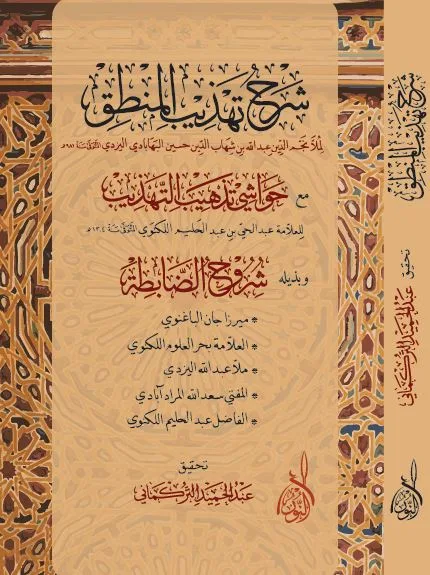 شرح تهذيب المنطق
للملا نجم الدين عبد الله بن شهاب الدين حسين البهابادي اليزدي المتوفى سنة ٩٨١هـ
مع حواشي تذهيب التهذيب
للعلامة عبد الحي بن عبد الحليم اللكنوي المتوفى سنة ١٣٠٤هـ
وبذيله شروح الضابطة
* ميرزا جان الباغنوي
* العلامة بحر العلوم اللكنوي
* ملا عبد الله اليزدي
* المفتي سعد الله المراد آبادي
* الفاضل عبد الحليم اللكنوي
تحقيق
عبد الحميد التركماني
النور
شرح تهذيب المنطق
تحقيق
عبد الحميد التركماني
النور